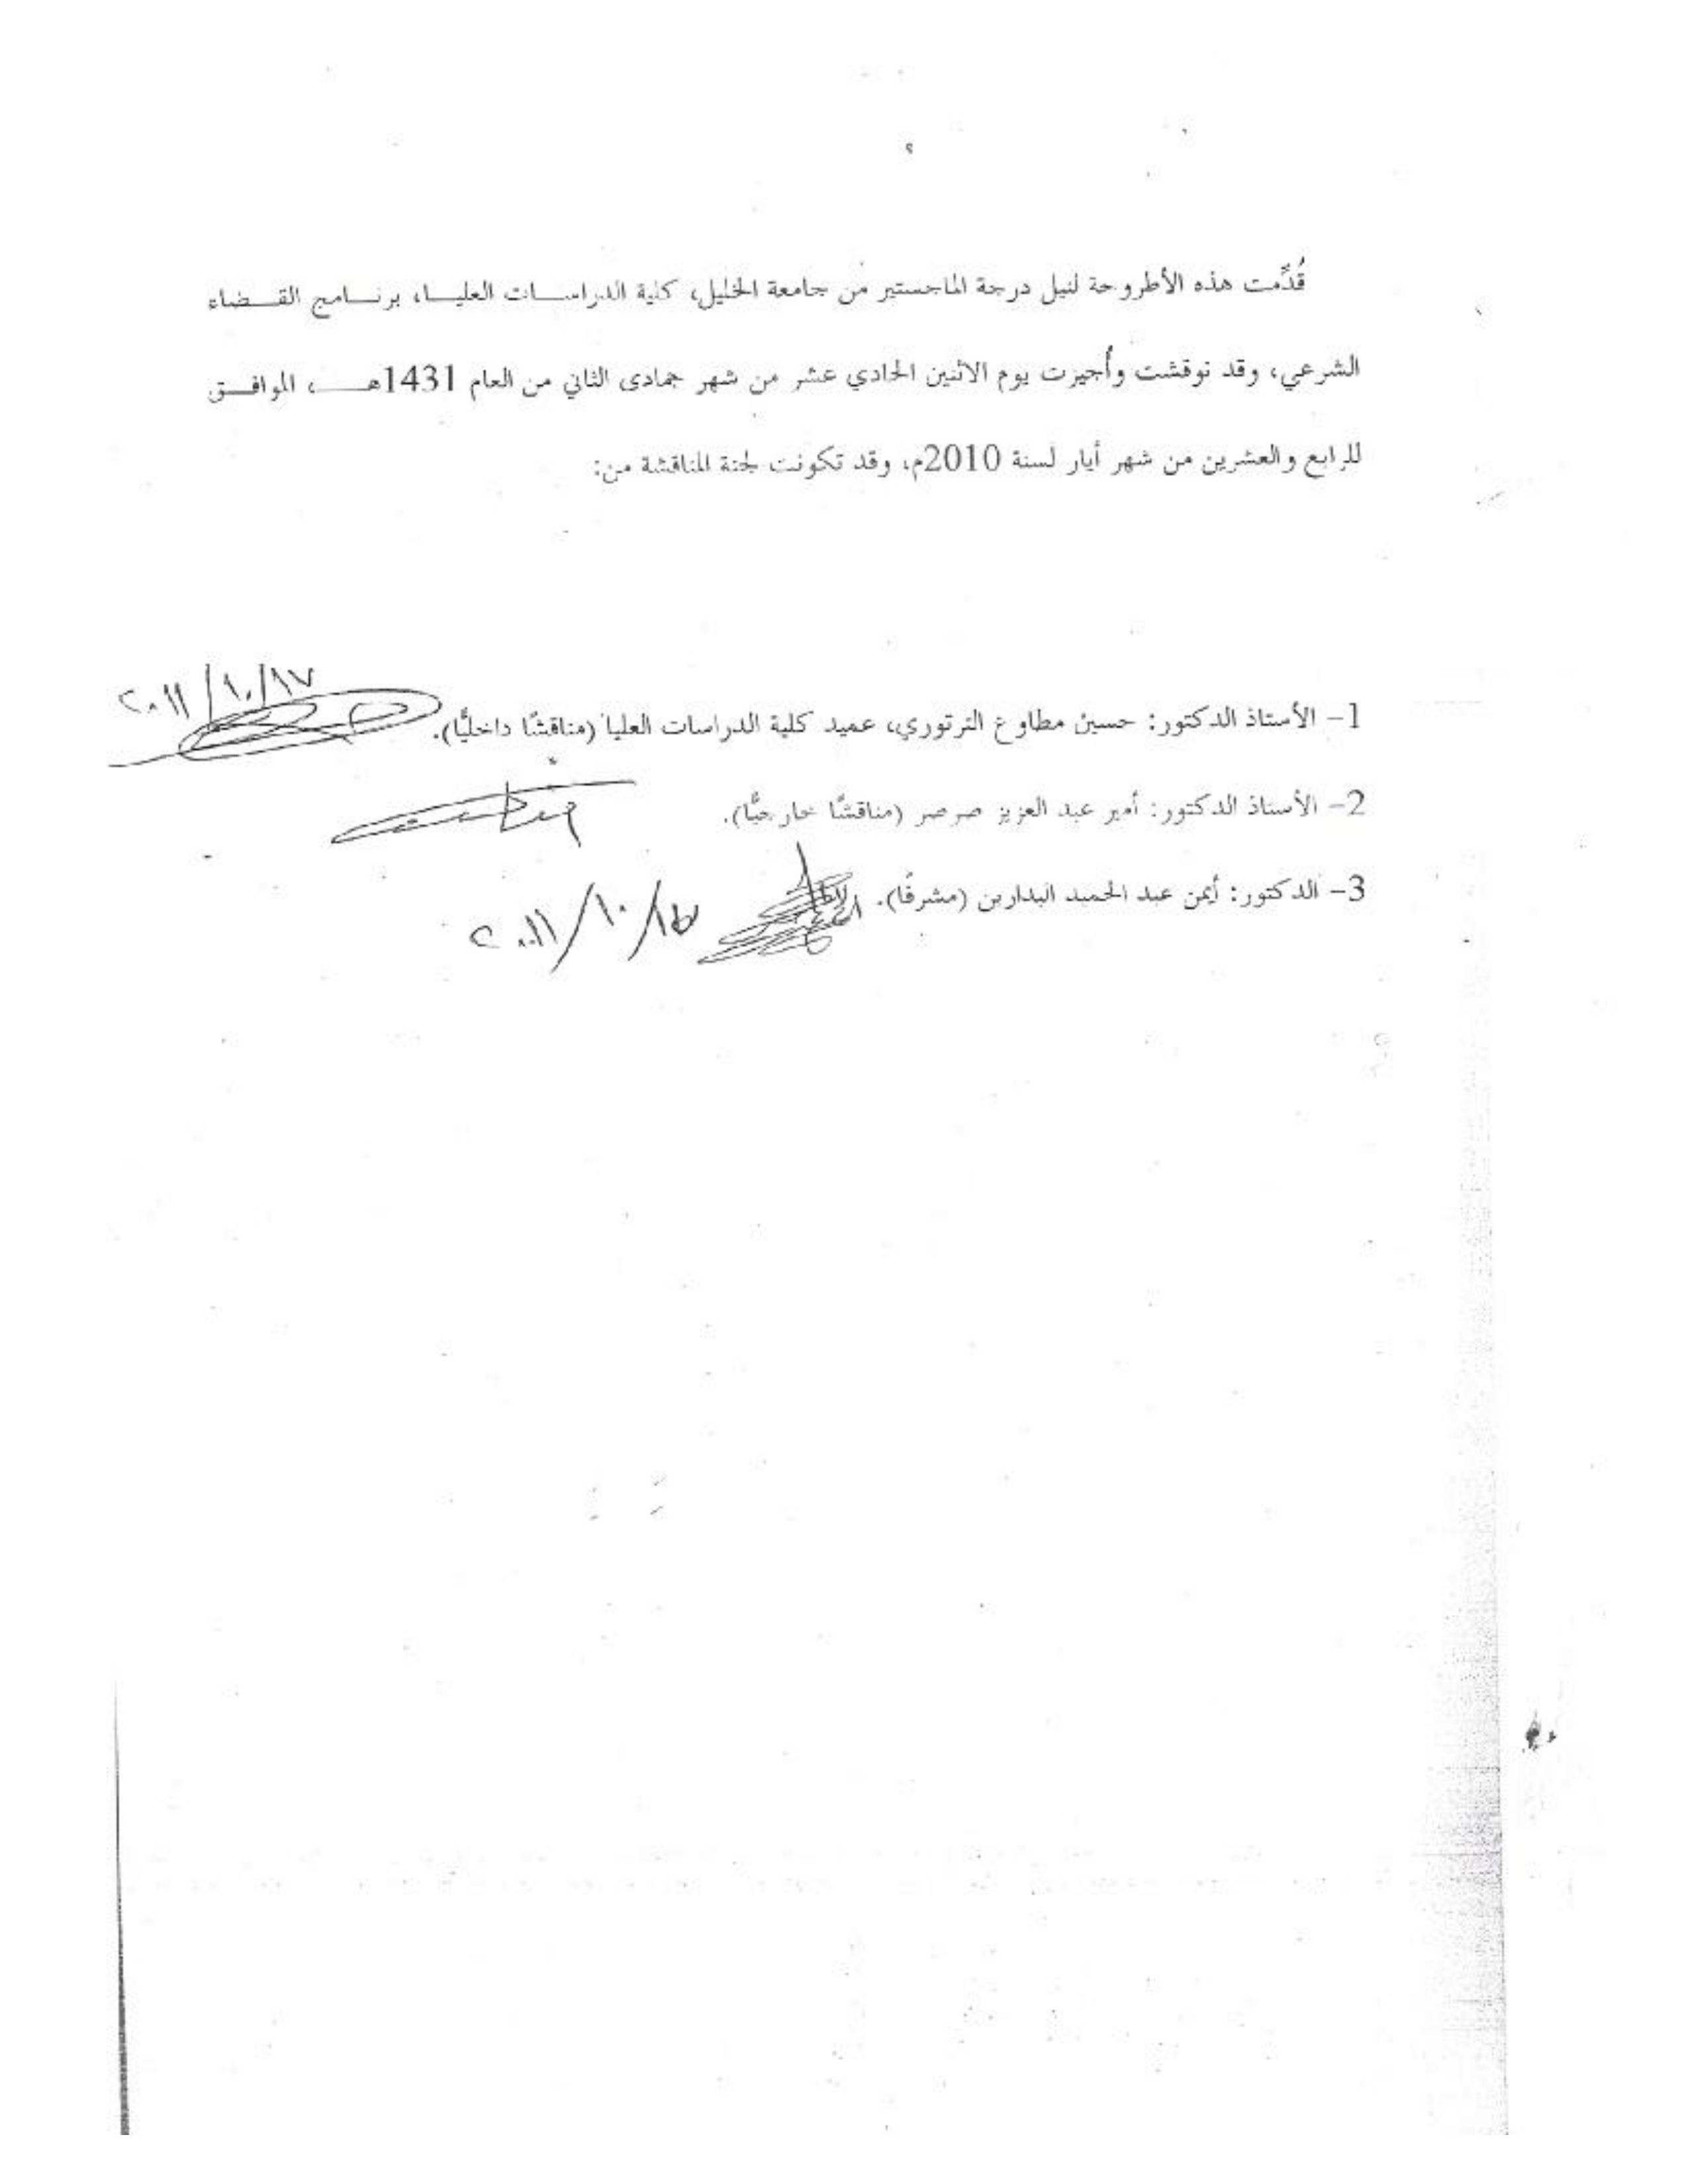 قُدِّمت هذه الأطروحة لنيل درجة الماجستير من جامعة الخليل، كلية الدراسات العليا، برنامج القضاء
الشرعي، وقد نوقشت وأُجيزت يوم الاثنين الحادي عشر من شهر جمادى الثاني من العام 1431هـ، الموافق
للرابع والعشرين من شهر أيار لسنة 2010م، وقد تكونت لجنة المناقشة من:
1- الأستاذ الدكتور: حسين مطاوع الترتوري، عميد كلية الدراسات العليا (مناقشًا داخليًّا). ٢٠١١/١٠/١٧
2- الأستاذ الدكتور: أمير عبد العزيز صرصر (مناقشًا خارجيًّا).
3- الدكتور: أيمن عبد الحميد البدارين (مشرفًا). ٢٠١١/١٠/١٧